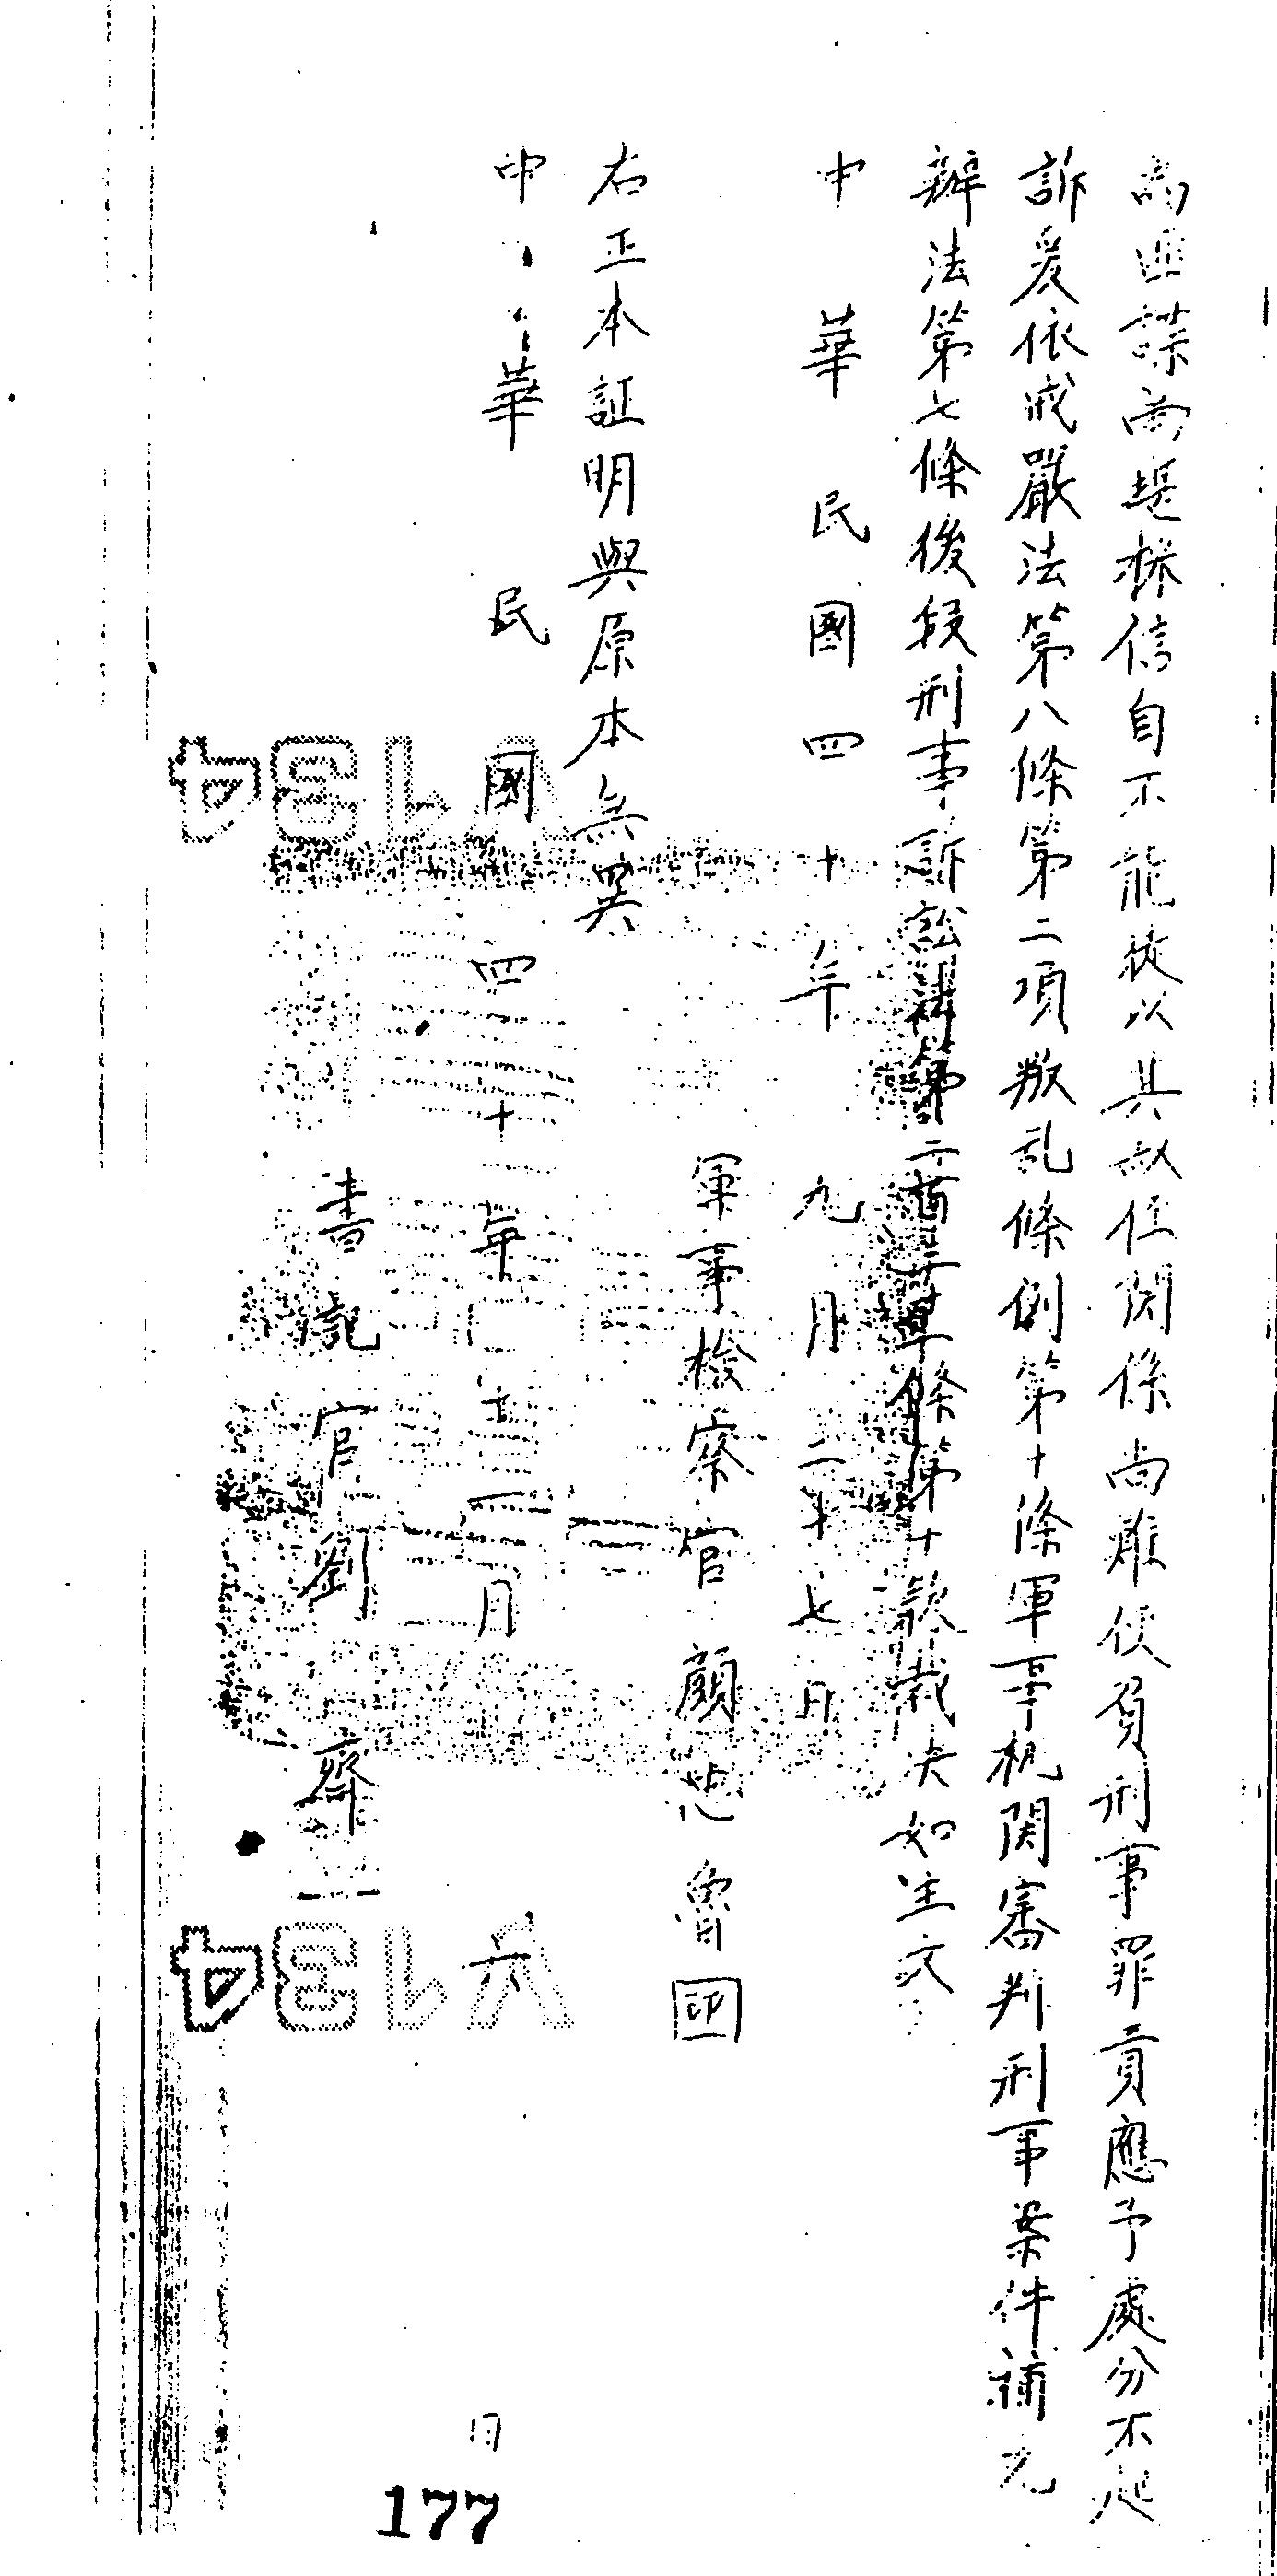 為匪諜尚堪採信自不能從以其叔侄関係尚难使負刑事罪責應予處分不起
訴爰依戒嚴法第八條第二項叛乱條例第十條軍事机関審判刑事案件補充
辦法第七條後段刑事訴訟法第二百三十一條第十款裁决如主文
中華民國四十年九月二十七日
軍事檢察官顏忠魯印
右正本証明與原本無異
中華民國四十年十一月六日
書記官劉齊
A134
A134
177